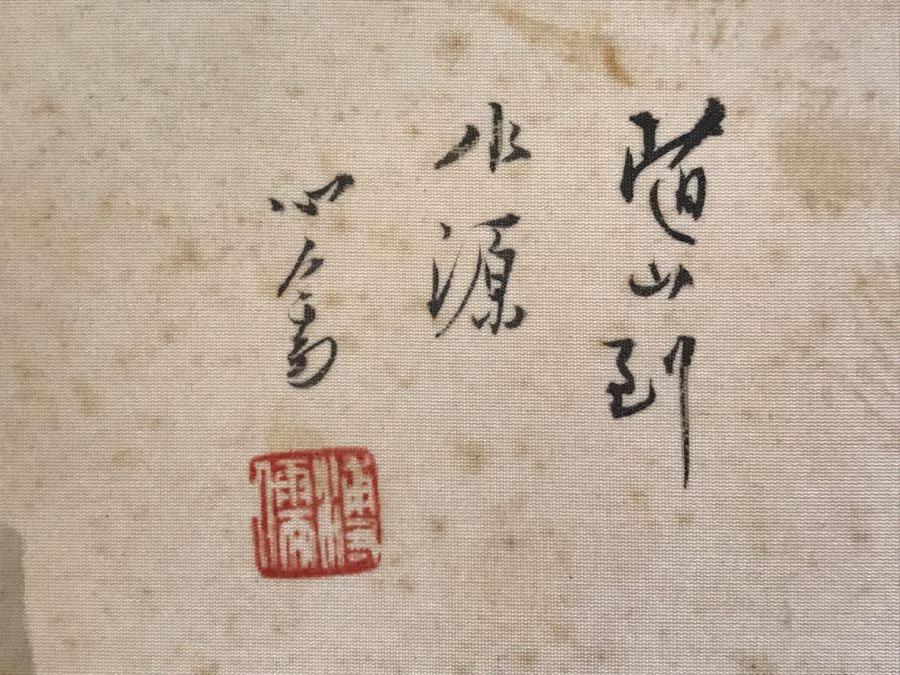 隨山到
水源
心畬
溥儒